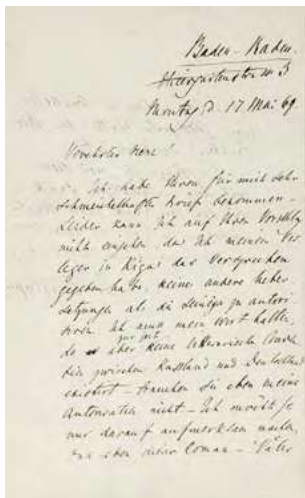 Baden-Baden.
Thiergartenstrasse 3
Montag d. 17 Mai 69.
Verehrter Herr!
Ich habe Ihren für mich sehr
schmeichelhaften Brief bekommen.
Leider kann ich auf Ihren Vorschlag
nicht eingehen, da ich meinem Ver
leger in Riga das Versprechen
gegeben habe, keine andere Ueber
setzungen als die Seinige zu autori
siren. Ich muss mein Wort halten,
da aber zur Zeit keine literarische
die zwischen Russland und Deutschland
existirt - brauchen Sie eben meine
Autorisation nicht - Ich möchte Sie
nur darauf aufmerksam machen,
dass eben dieser Roman - "Väter